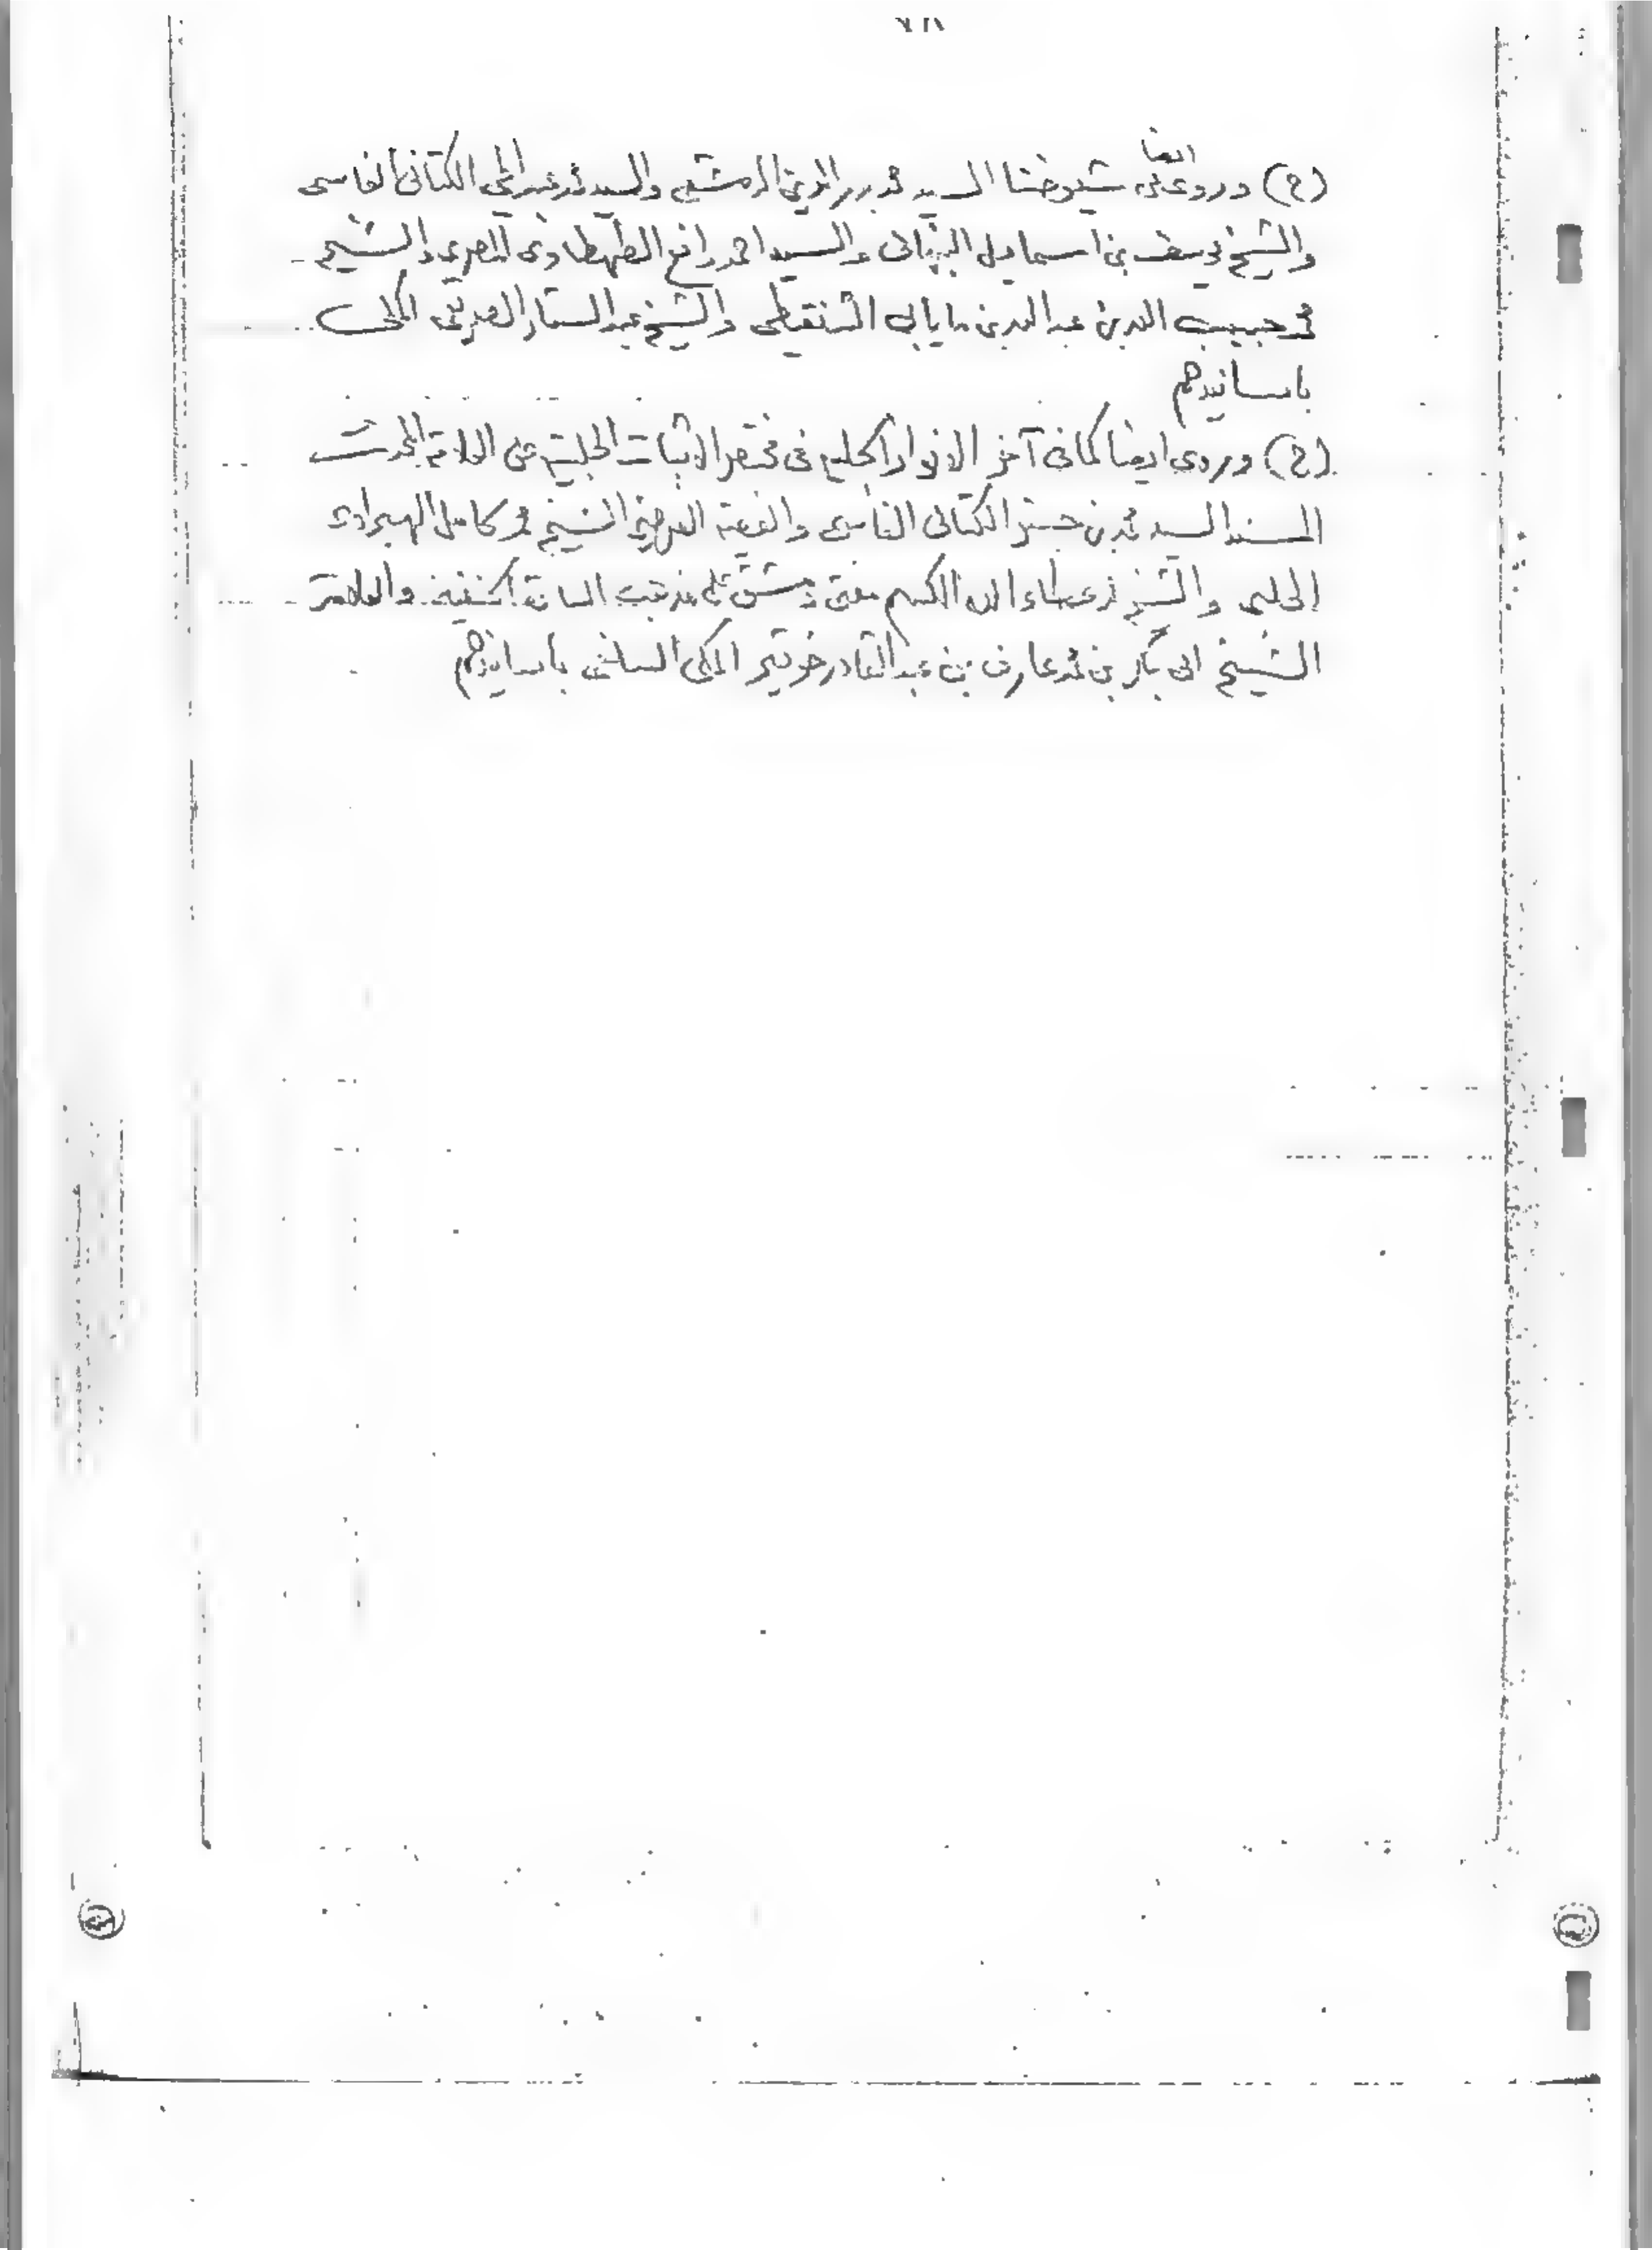 (ح) وروى عن شيوخنا السيد محمد بدر الدين الدمشقي والسيد محمد عبد الحي الكتاني الفاسي
ايضا
والشيخ يوسف بن اسماعيل النبهاني والسيد احمد رافع الطهطاوي المصري والشيخ
محمد حبيب الله بن عبد الله بن مايابى الشنقيطي والشيخ عبد الستار الصديقي المكي
باسانيدهم
(ح) وروى ايضا كما في آخر الانوار الجلية في مختصر الاثبات الحلبية عن العلامة المحدث
المسند السيد محمد بن جعفر الكتاني الفاسي والفقيه الفرضي الشيخ محمد كامل الهبراوي
الحلبي والشيخ محمد عطاء الله الكسم مفتي دمشق على مذهب السادة الحنفية والعلامة
الشيخ ابي بكر بن محمد عارف بن عبد القادر خوقير المكي السلفي باسانيدهم